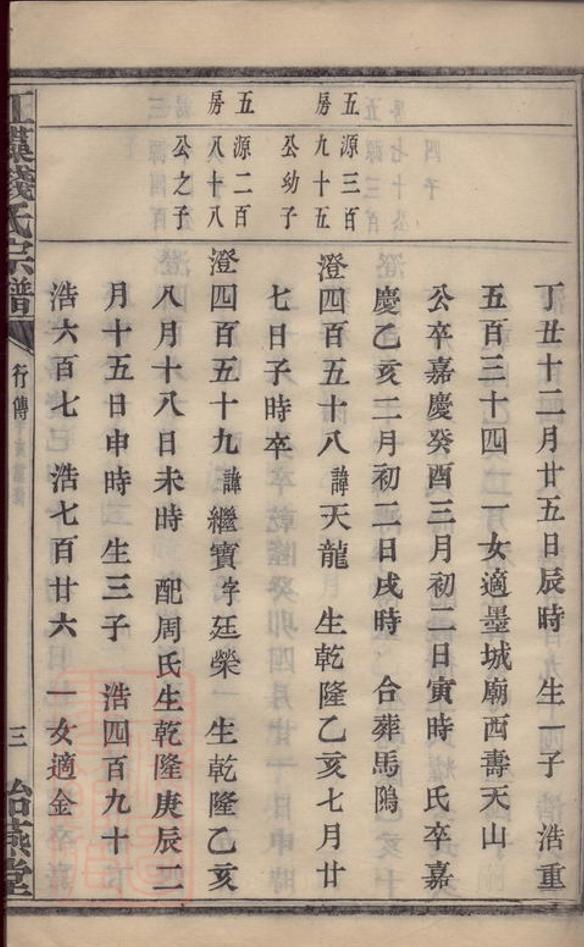 丁丑十二月廿五日辰時 生一子 浩重
五百三十四 一女適墨城廟西壽天山
公卒嘉慶癸酉三月初二日寅時 氏卒嘉
慶乙亥二月初二日戌時 合葬馬隝
五房
源三百
九十五
公幼子
澄四百五十八 諱天龍 生乾隆乙亥七月廿
七日子時卒
五房
源二百
八十八
公之子
澄四百五十九 諱繼寶 字廷榮 生乾隆乙亥
八月十八日未時 配周氏生乾隆庚辰二
月十五日申時 生三子 浩四百九十
浩六百七 浩七百廿六 一女適金
錢氏宗譜 行傳 三 詒燕堂